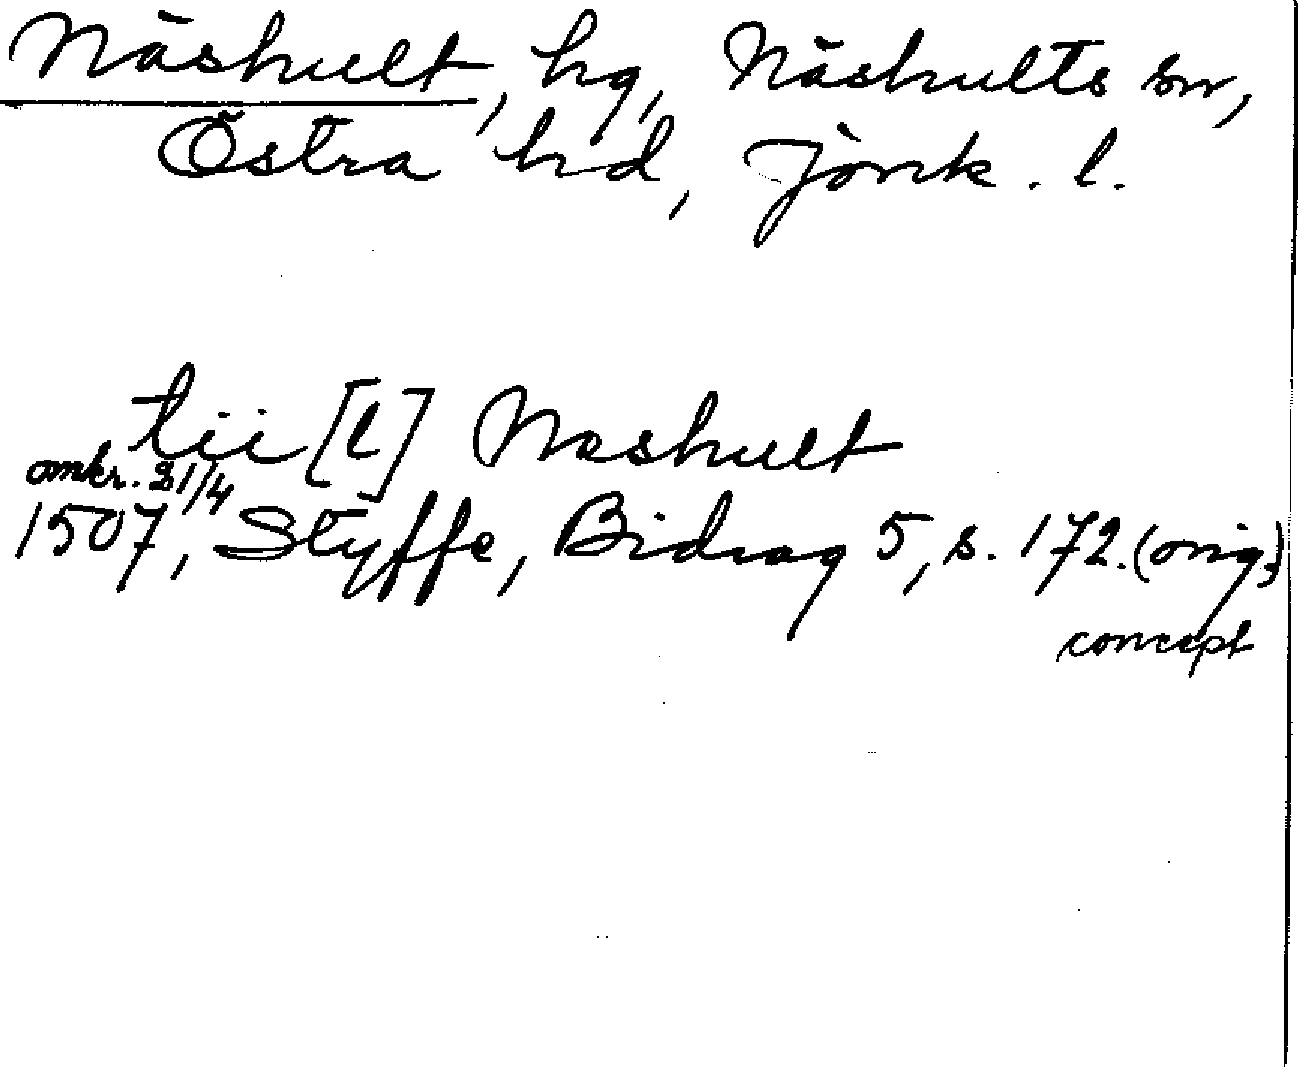 Näshult, hg, Näshults sn,
Östra hd, Jönk. l.
tii [l] Nashult
omkr. 21/4
1507, Styffe, Bidrag 5, s. 172. (orig.)
concept